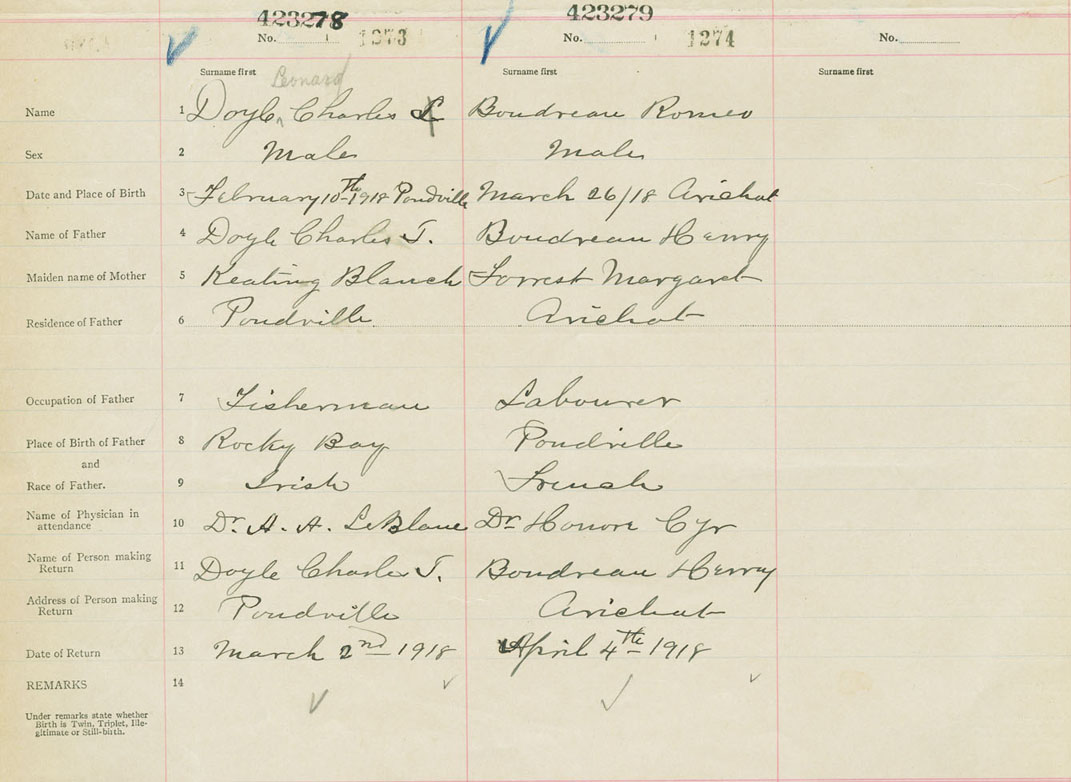 423278 423279
No. 1273 No. 1274 No.
Surname first Leonard Surname first Surname first
Name 1 Doyle, Charles L Boudreau Romeo
Sex 2 Male Male
Date and Place of Birth 3 February 10th 1918 Poudville March 26/18 Arichat
Name of Father 4 Doyle Charles J. Boudreau Henry
Maiden name of Mother 5 Keating Blanch Forrest Margaret
Residence of Father 6 Poudville Arichat
Occupation of Father 7 Fisherman Labourer
Place of Birth of Father 8 Rocky Bay Poudville
and
Race of Father. 9 Irish French
Name of Physician in
attendance 10 Dr. A. A. LeBlanc Dr Honore Cyr
Name of Person making
Return 11 Doyle Charles J. Boudreau Henry
Address of Person making
Return 12 Poudville Arichat
Date of Return 13 March 2nd 1918 April 4th 1918
REMARKS 14
Under remarks state whether
Birth is Twin, Triplet, Ille-
gitimate or Still-birth.